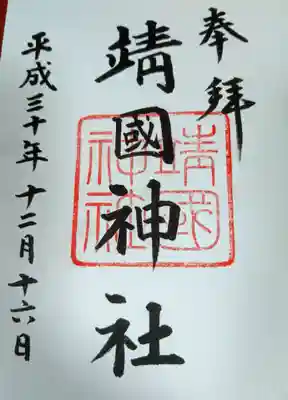 奉拜
靖國神社
靖國
神社
平成三十年十二月十六日